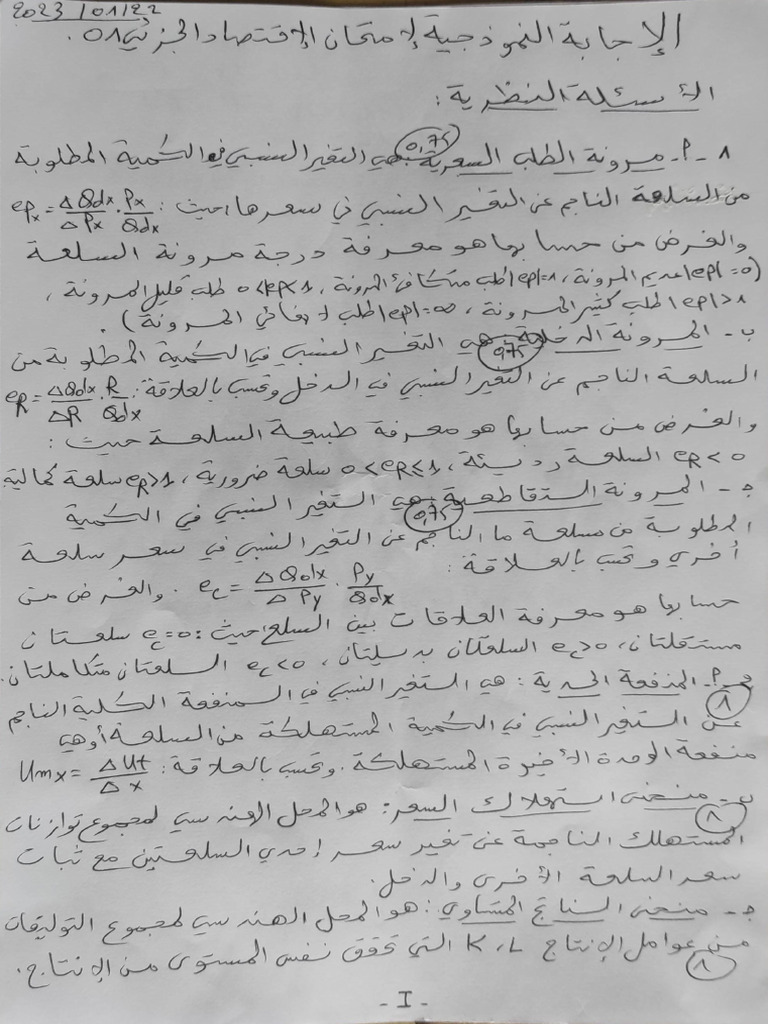 2023/01/22
الإجابة النموذجية لإمتحان الإقتصاد الجزئي 01.
الأسئلة النظرية:
1-P- مرونة الطلب السعرية: هي التغير النسبي في الكمية المطلوبة
0,75
من السلعة الناجم عن التغير النسبي في سعرها، حيث: ePx = ΔQdx/ΔPx . Px/Qdx
والغرض من حسابها هو معرفة درجة مرونة السلعة
(|ep|=0 عديم المرونة، |ep|=1 طلب متكافئ المرونة، 0<|ep|<1 طلب قليل المرونة،
|ep|>1 الطلب كثير المرونة، |ep|=∞ الطلب لا نهائي المرونة).
ب- المرونة الدخلية: هي التغير النسبي في الكمية المطلوبة من
0,75
السلعة الناجم عن التغير النسبي في الدخل وتحسب بالعلاقة: eR = ΔQdx/ΔR . R/Qdx
والغرض من حسابها هو معرفة طبيعة السلعة حيث:
eR<0 السلعة رديئة، 0<eR≤1 سلعة ضرورية، eR>1 سلعة كمالية
ج- المرونة التقاطعية: هي التغير النسبي في الكمية
0,75
المطلوبة من سلعة ما الناجم عن التغير النسبي في سعر سلعة
أخرى وتحسب بالعلاقة: ec = ΔQdx/ΔPy . Py/Qdx . والغرض من
حسابها هو معرفة العلاقات بين السلع حيث: ec=0 سلعتان
مستقلتان، ec>0 السلعتان بديلتان، ec<0 السلعتان متكاملتان.
P- المنفعة الحدية: هي التغير النسبي في المنفعة الكلية الناجم
1
عن التغير النسبي في الكمية المستهلكة من السلعة أو هي
منفعة الوحدة الأخيرة المستهلكة. وتحسب بالعلاقة: Umx = ΔUt/Δx
ب- منحنى استهلاك السعر: هو المحل الهندسي لمجموع توازنات
1
المستهلك الناجمة عن تغير سعر إحدى السلعتين مع ثبات
سعر السلعة الأخرى والدخل.
ج- منحنى الناتج المتساوي: هو المحل الهندسي لمجموع التوليفات
من عوامل الإنتاج K، L التي تحقق نفس المستوى من الإنتاج.
1
- I -